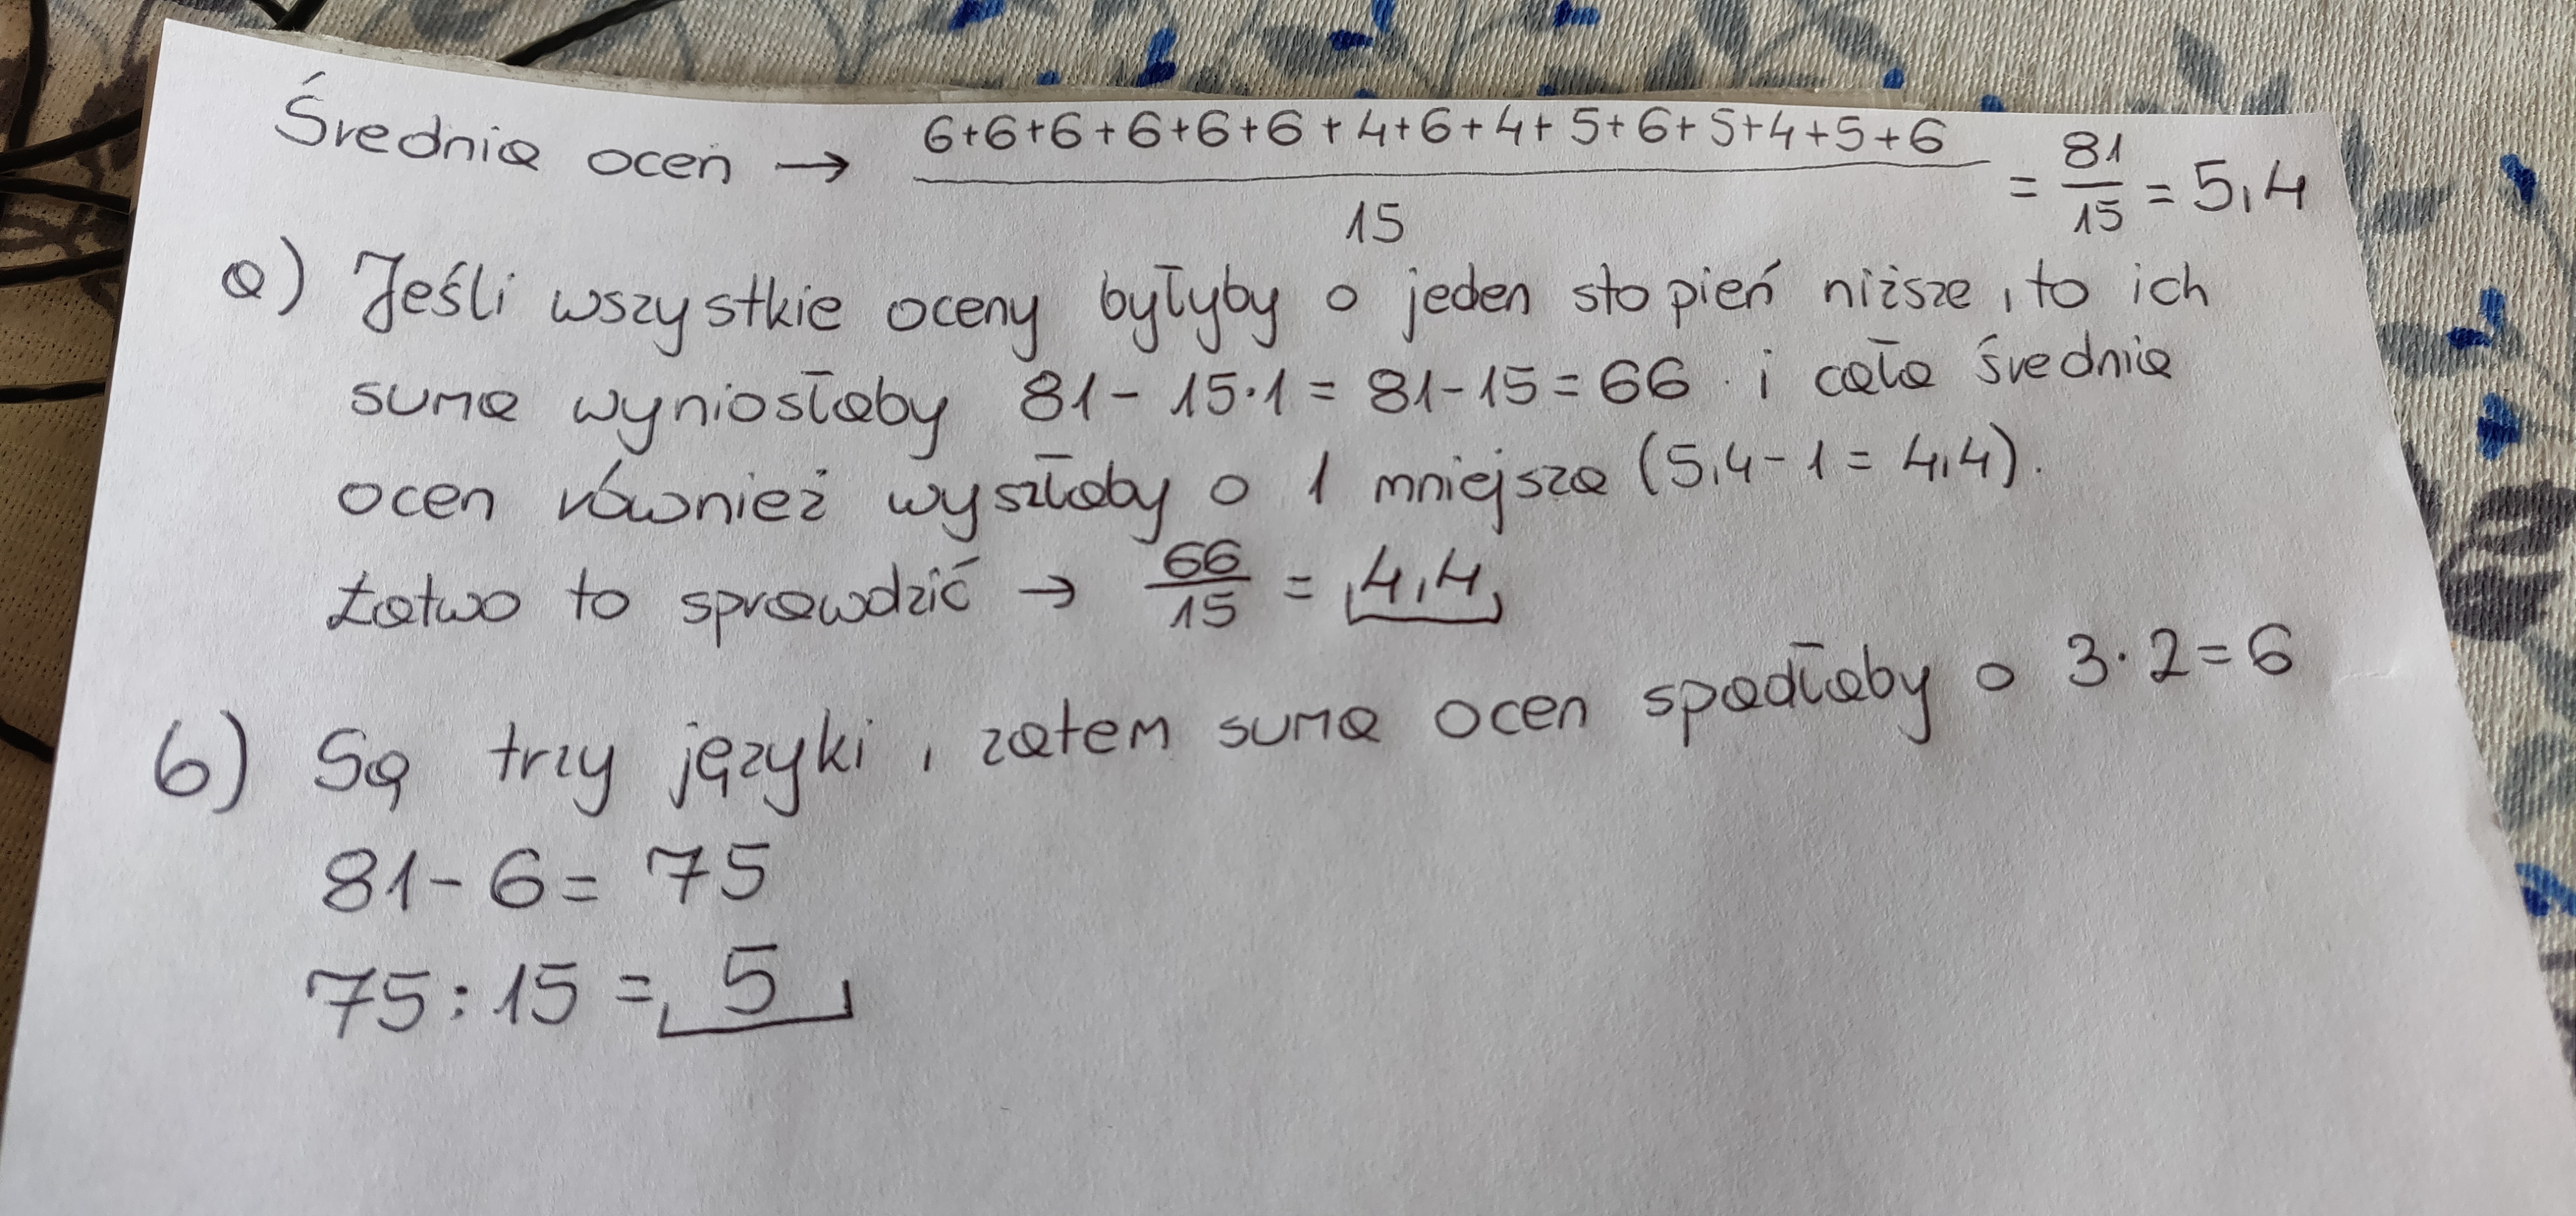 Średnia ocen → 6+6+6+6+6+6+4+6+4+5+6+5+4+5+6 / 15 = 81/15 = 5,4
a) Jeśli wszystkie oceny byłyby o jeden stopień niższe, to ich
suma wyniosłaby 81 - 15·1 = 81-15 = 66 i cała średnia
ocen również wyszłaby o 1 mniejsza (5,4 - 1 = 4,4).
Łatwo to sprawdzić → 66/15 = 4,4
b) Są trzy języki, zatem suma ocen spadłaby o 3·2=6
81-6= 75
75:15 = 5